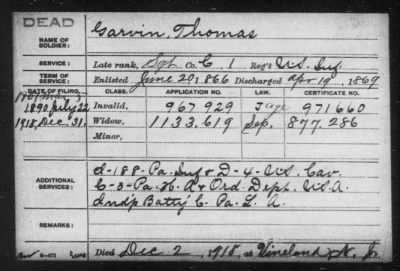 DEAD
NAME OF SOLDIER: Garvin, Thomas
SERVICE: Late rank, Sgt Co. C. 1 Reg't U.S. Inf
TERM OF SERVICE: Enlisted June 20, 1866 Discharged Apr 19, 1869
DATE OF FILING. CLASS. APPLICATION NO. LAW. CERTIFICATE NO.
1890 July 22 Invalid. 967.929 971660
1918, Dec. 31. Widow. 1133.619 Sep. 877.286
Minor.
ADDITIONAL SERVICES: d-188-Pa. Inf & D-4-U.S. Cav.
C-3-Pa. H. A & Ord. Dept. U.S.A.
Indp. Batty C. Pa. L. A.
REMARKS:
Died Dec 2, 1918, at Vineland N. J.